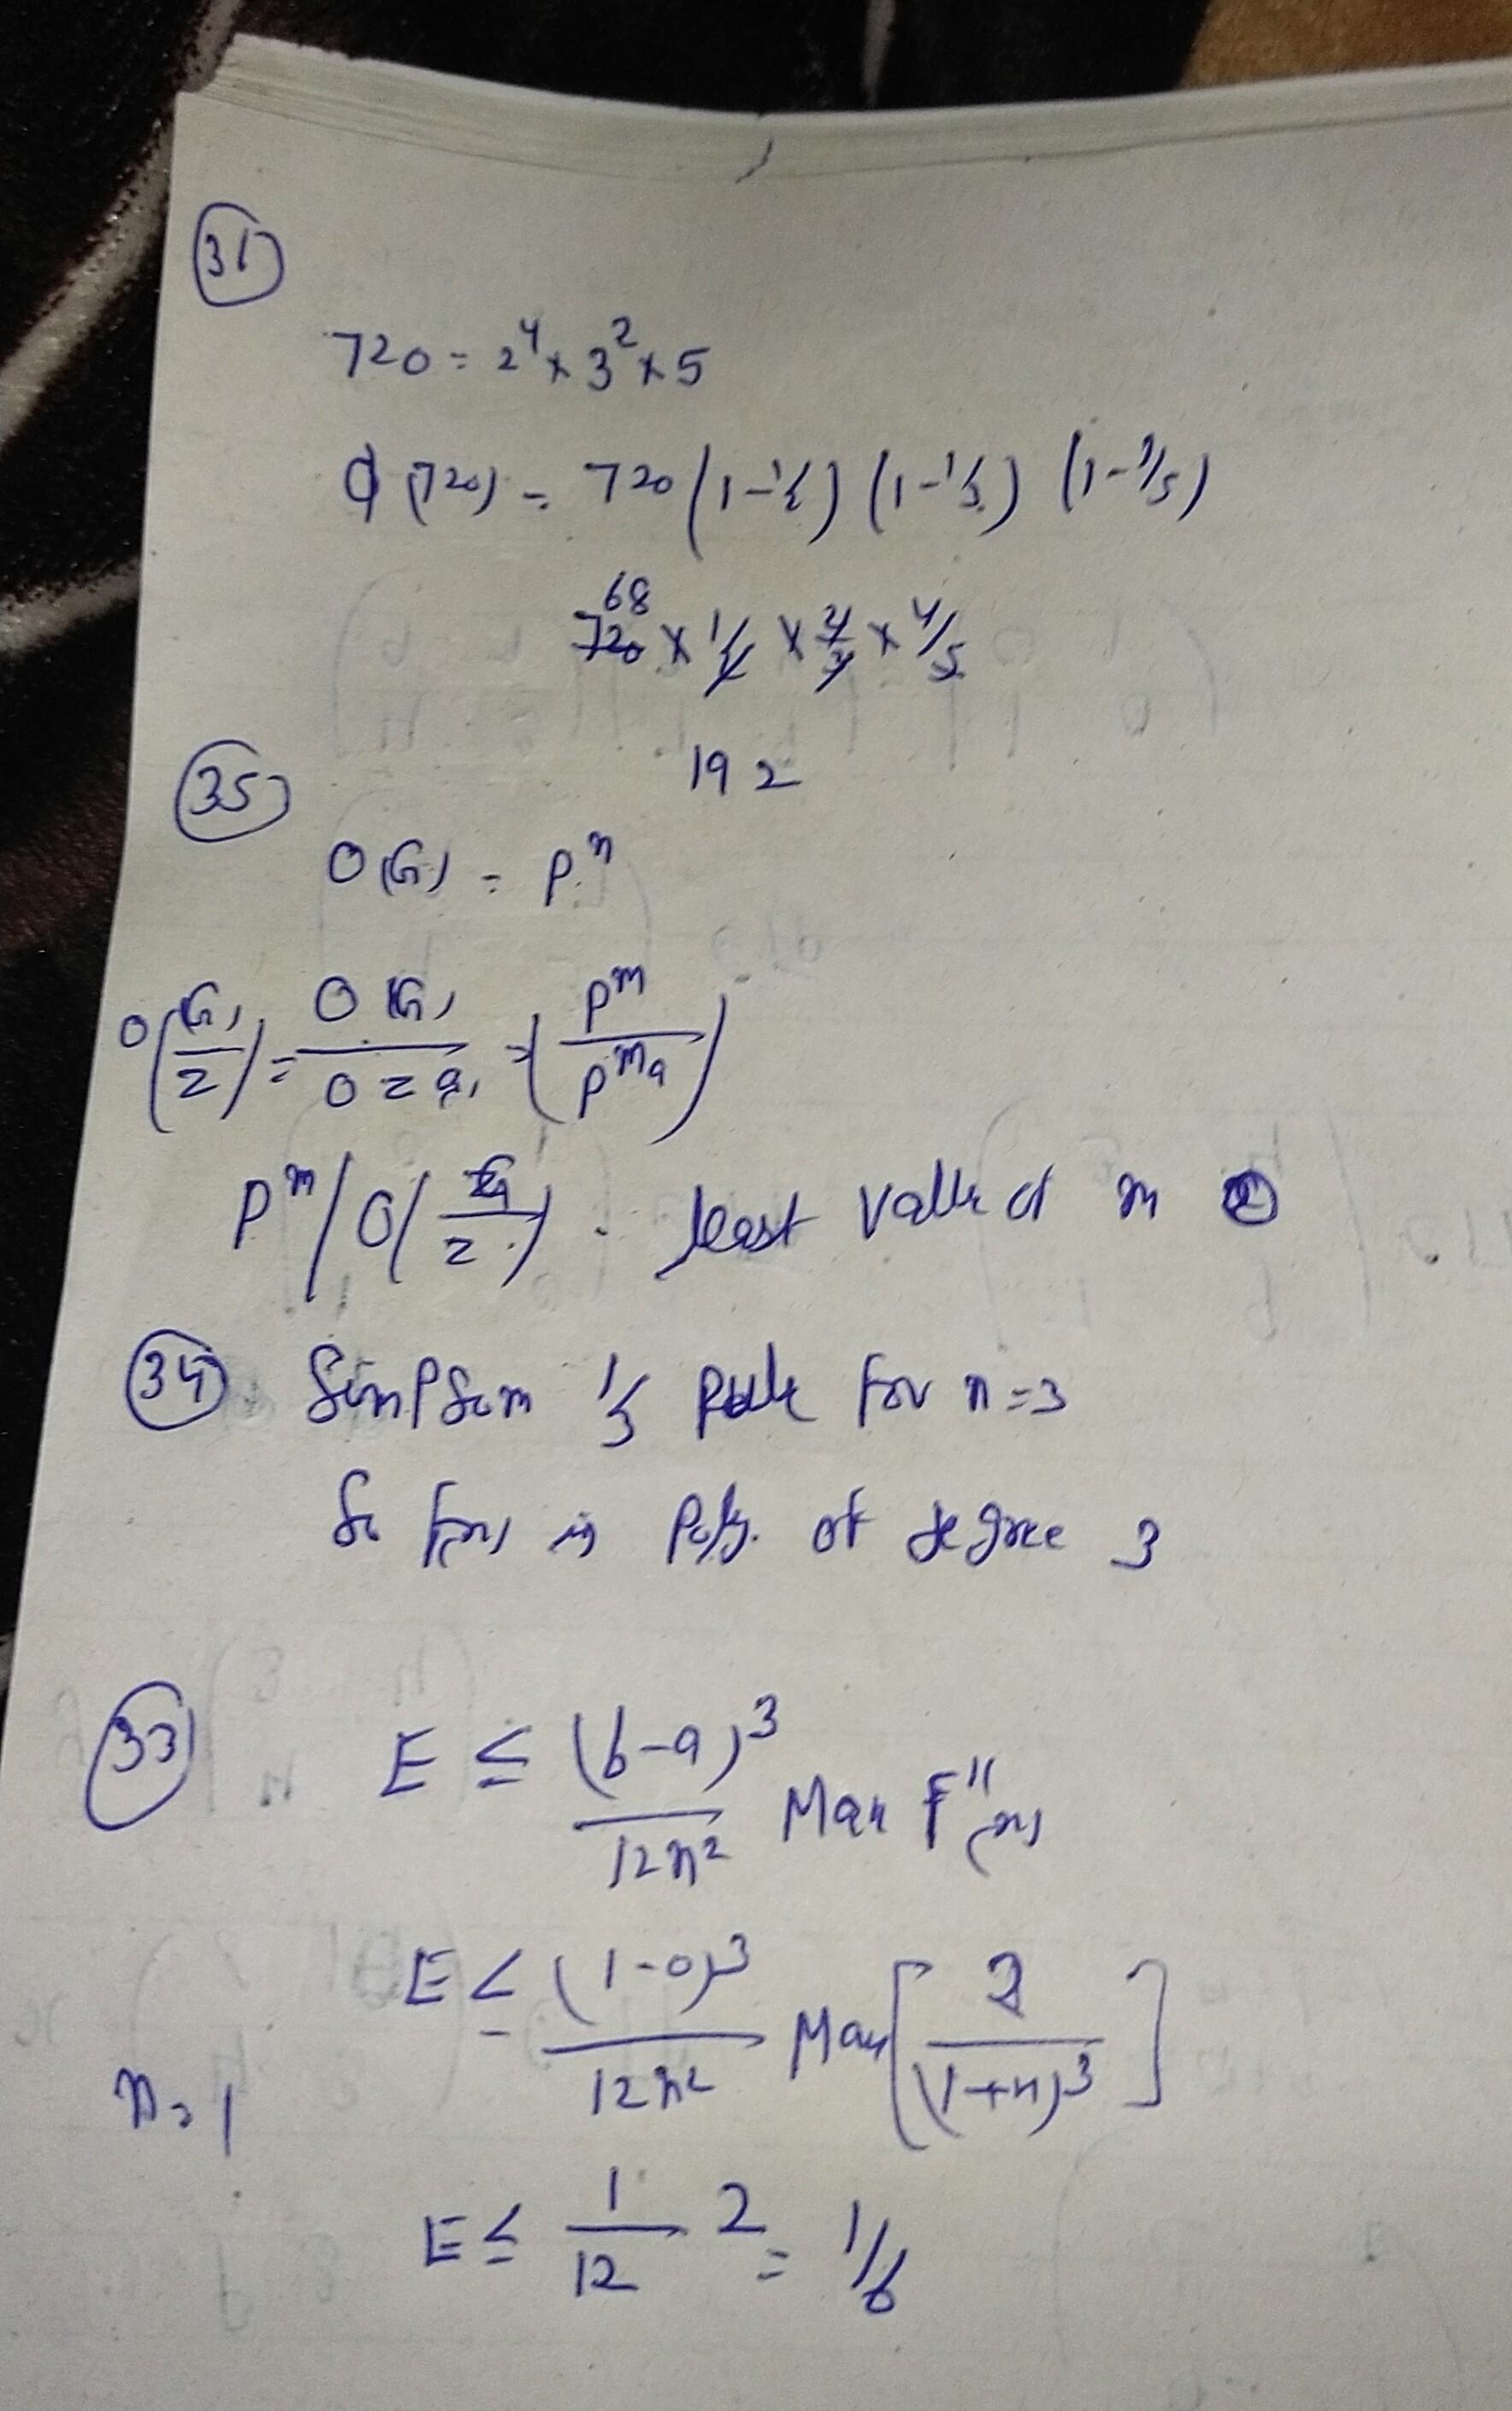 31
720 = 2^4 x 3^2 x 5
φ(720) = 720 (1-1/2) (1-1/3) (1-1/5)
68
720 x 1/2 x 2/3 x 4/5
192
35
O(G) = P^n
O(G/Z) = O(G)/O Z G = (P^m/P^m
P^m / O(G/Z) . least value of m 2
34 Simpson 1/3 Rule for n=3
So f(x) is Poly. of degree 3
33 E ≤ (b-a)^3/12n^2 Max F''(x)
E ≤ (1-0)^3/12n^2 Max [2/(1+x)^3]
n=1
E ≤ 1/12 2 = 1/6